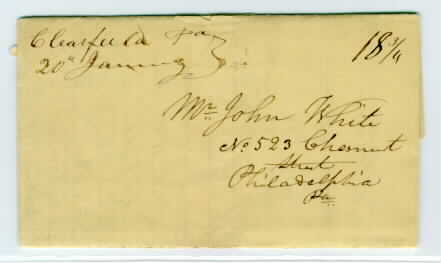 Clearfield Pa
20th January
18 3/4
Mr. John White
No. 523 Chesnut
Street
Philadelphia
Pa